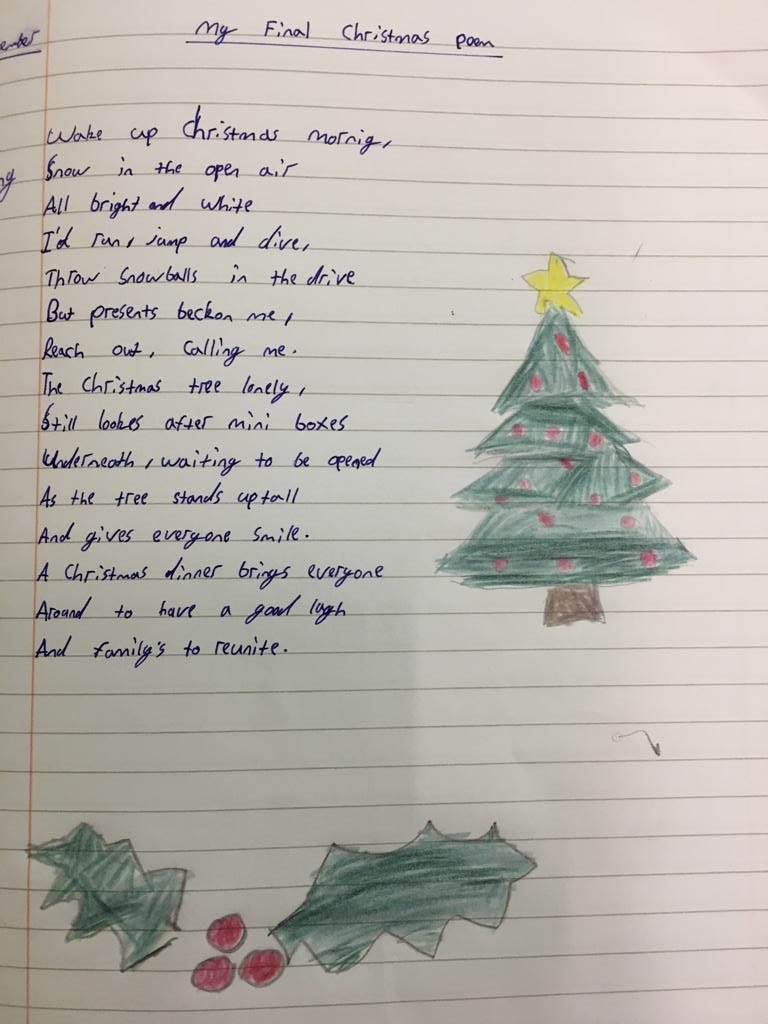 ember
My Final Christmas poem
Wake up Christmas mornig,
ng
Snow in the open air
All bright and white
I'd run, jump and dive,
Throw snowballs in the drive
But presents beckon me,
Reach out, calling me.
The Christmas tree lonely,
Still lookes after mini boxes
Underneath, waiting to be opened
As the tree stands up tall
And gives everyone smile.
A Christmas dinner brings everyone
Around to have a good lagh
And family's to reunite.